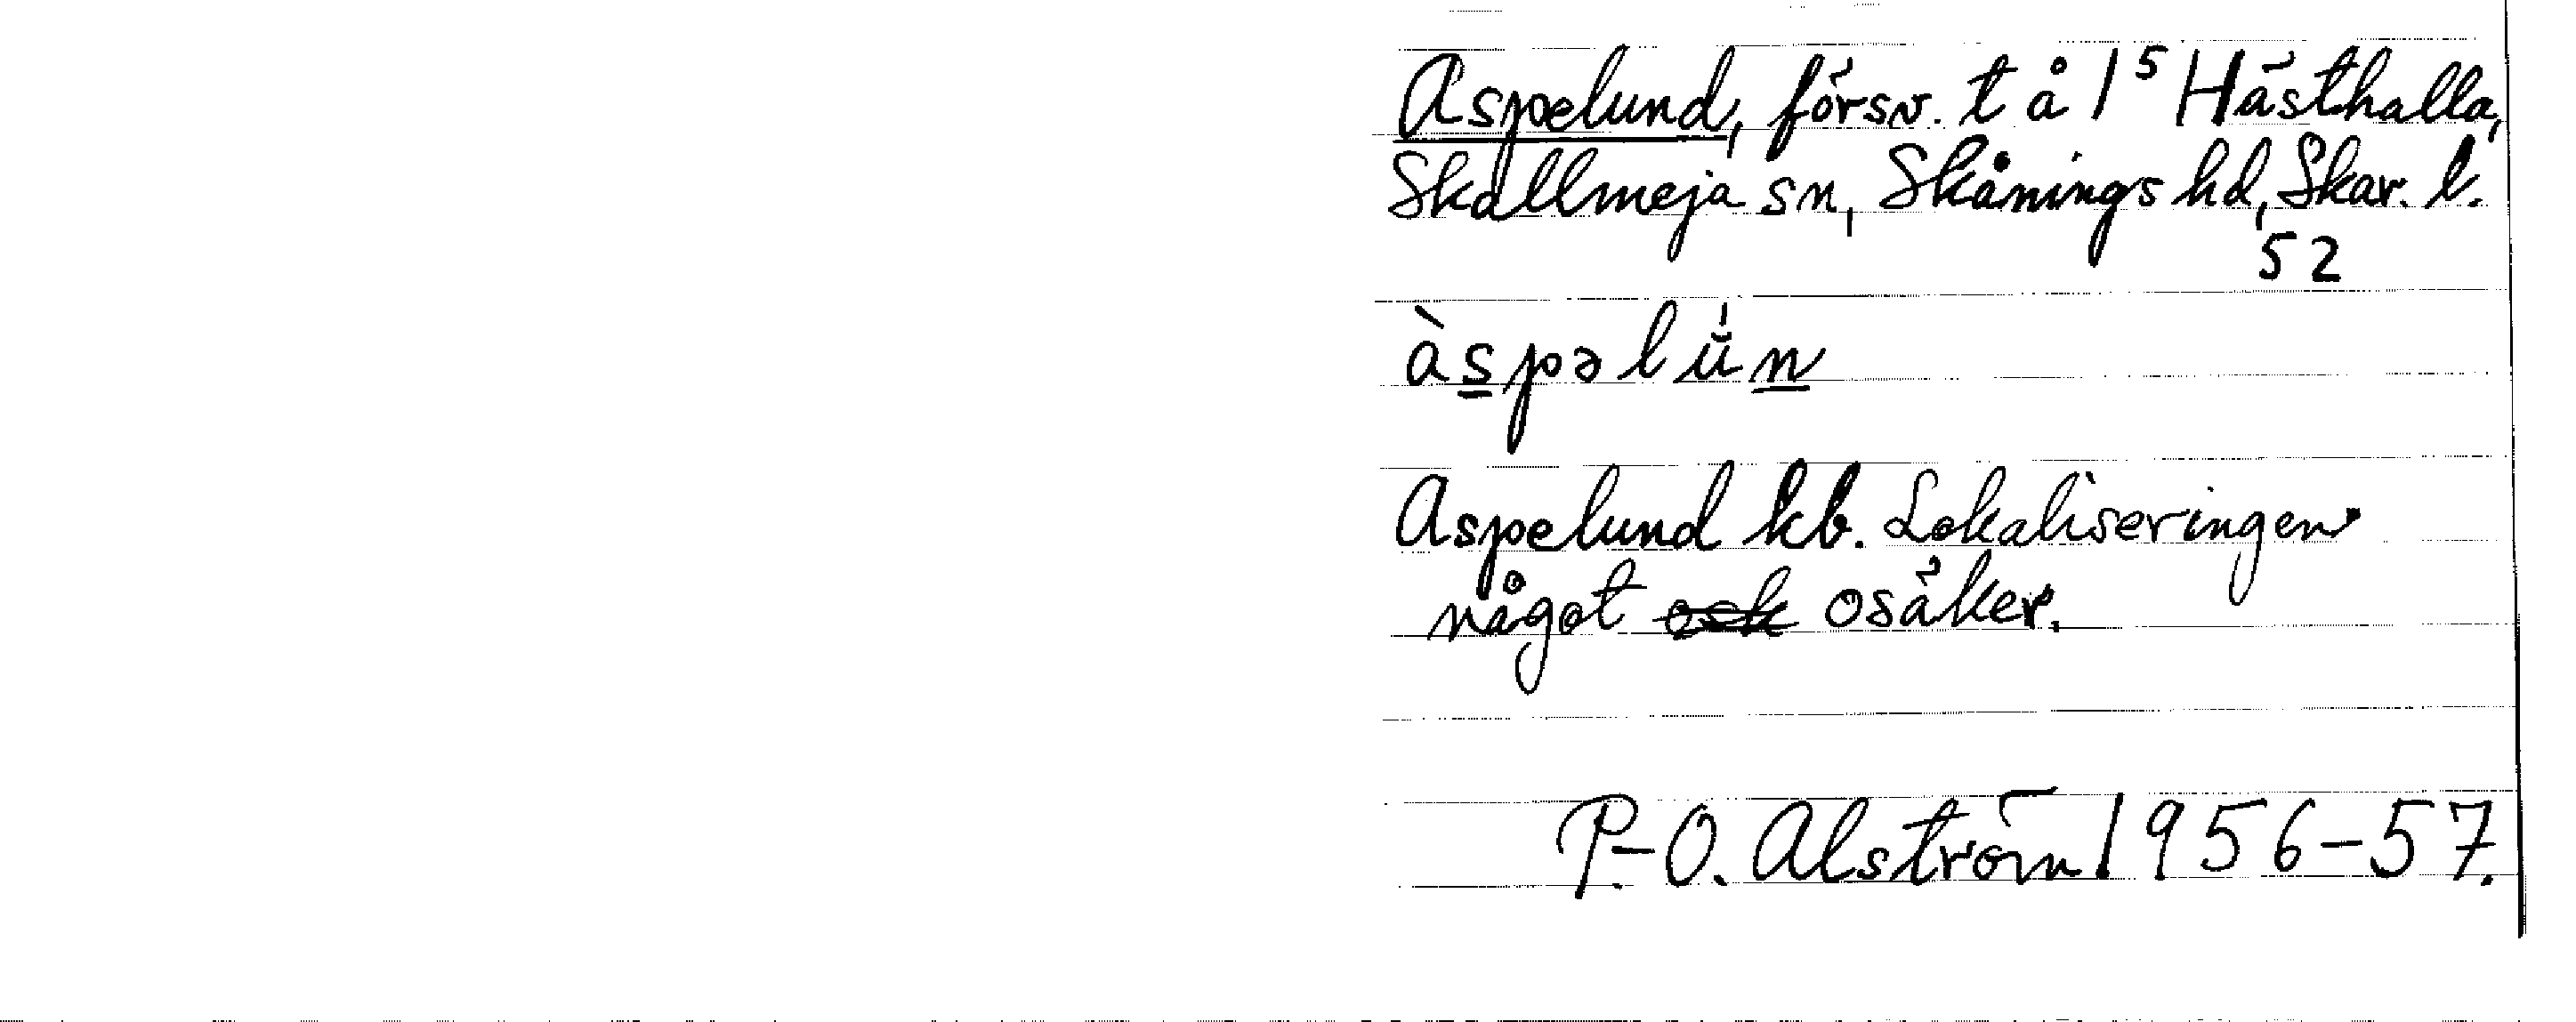 Aspelund, försv. t å 1⁵ Hästhalla,
Skallmeja sn, Skånings hd, Skar. l.
52
àspəlŭ́n
Aspelund kb. Lokaliseringen
något osäker.
P.-O. Alström 1956-57.